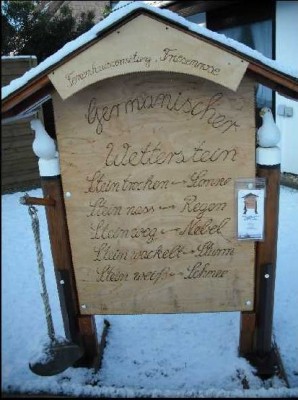 Ferienhaussiedlung "Friesenrose"
Germanischer
Wetterstein
Stein trocken - Sonne
Stein nass - Regen
Stein weg - Nebel
Stein wackelt - Sturm
Stein weiß - Schnee